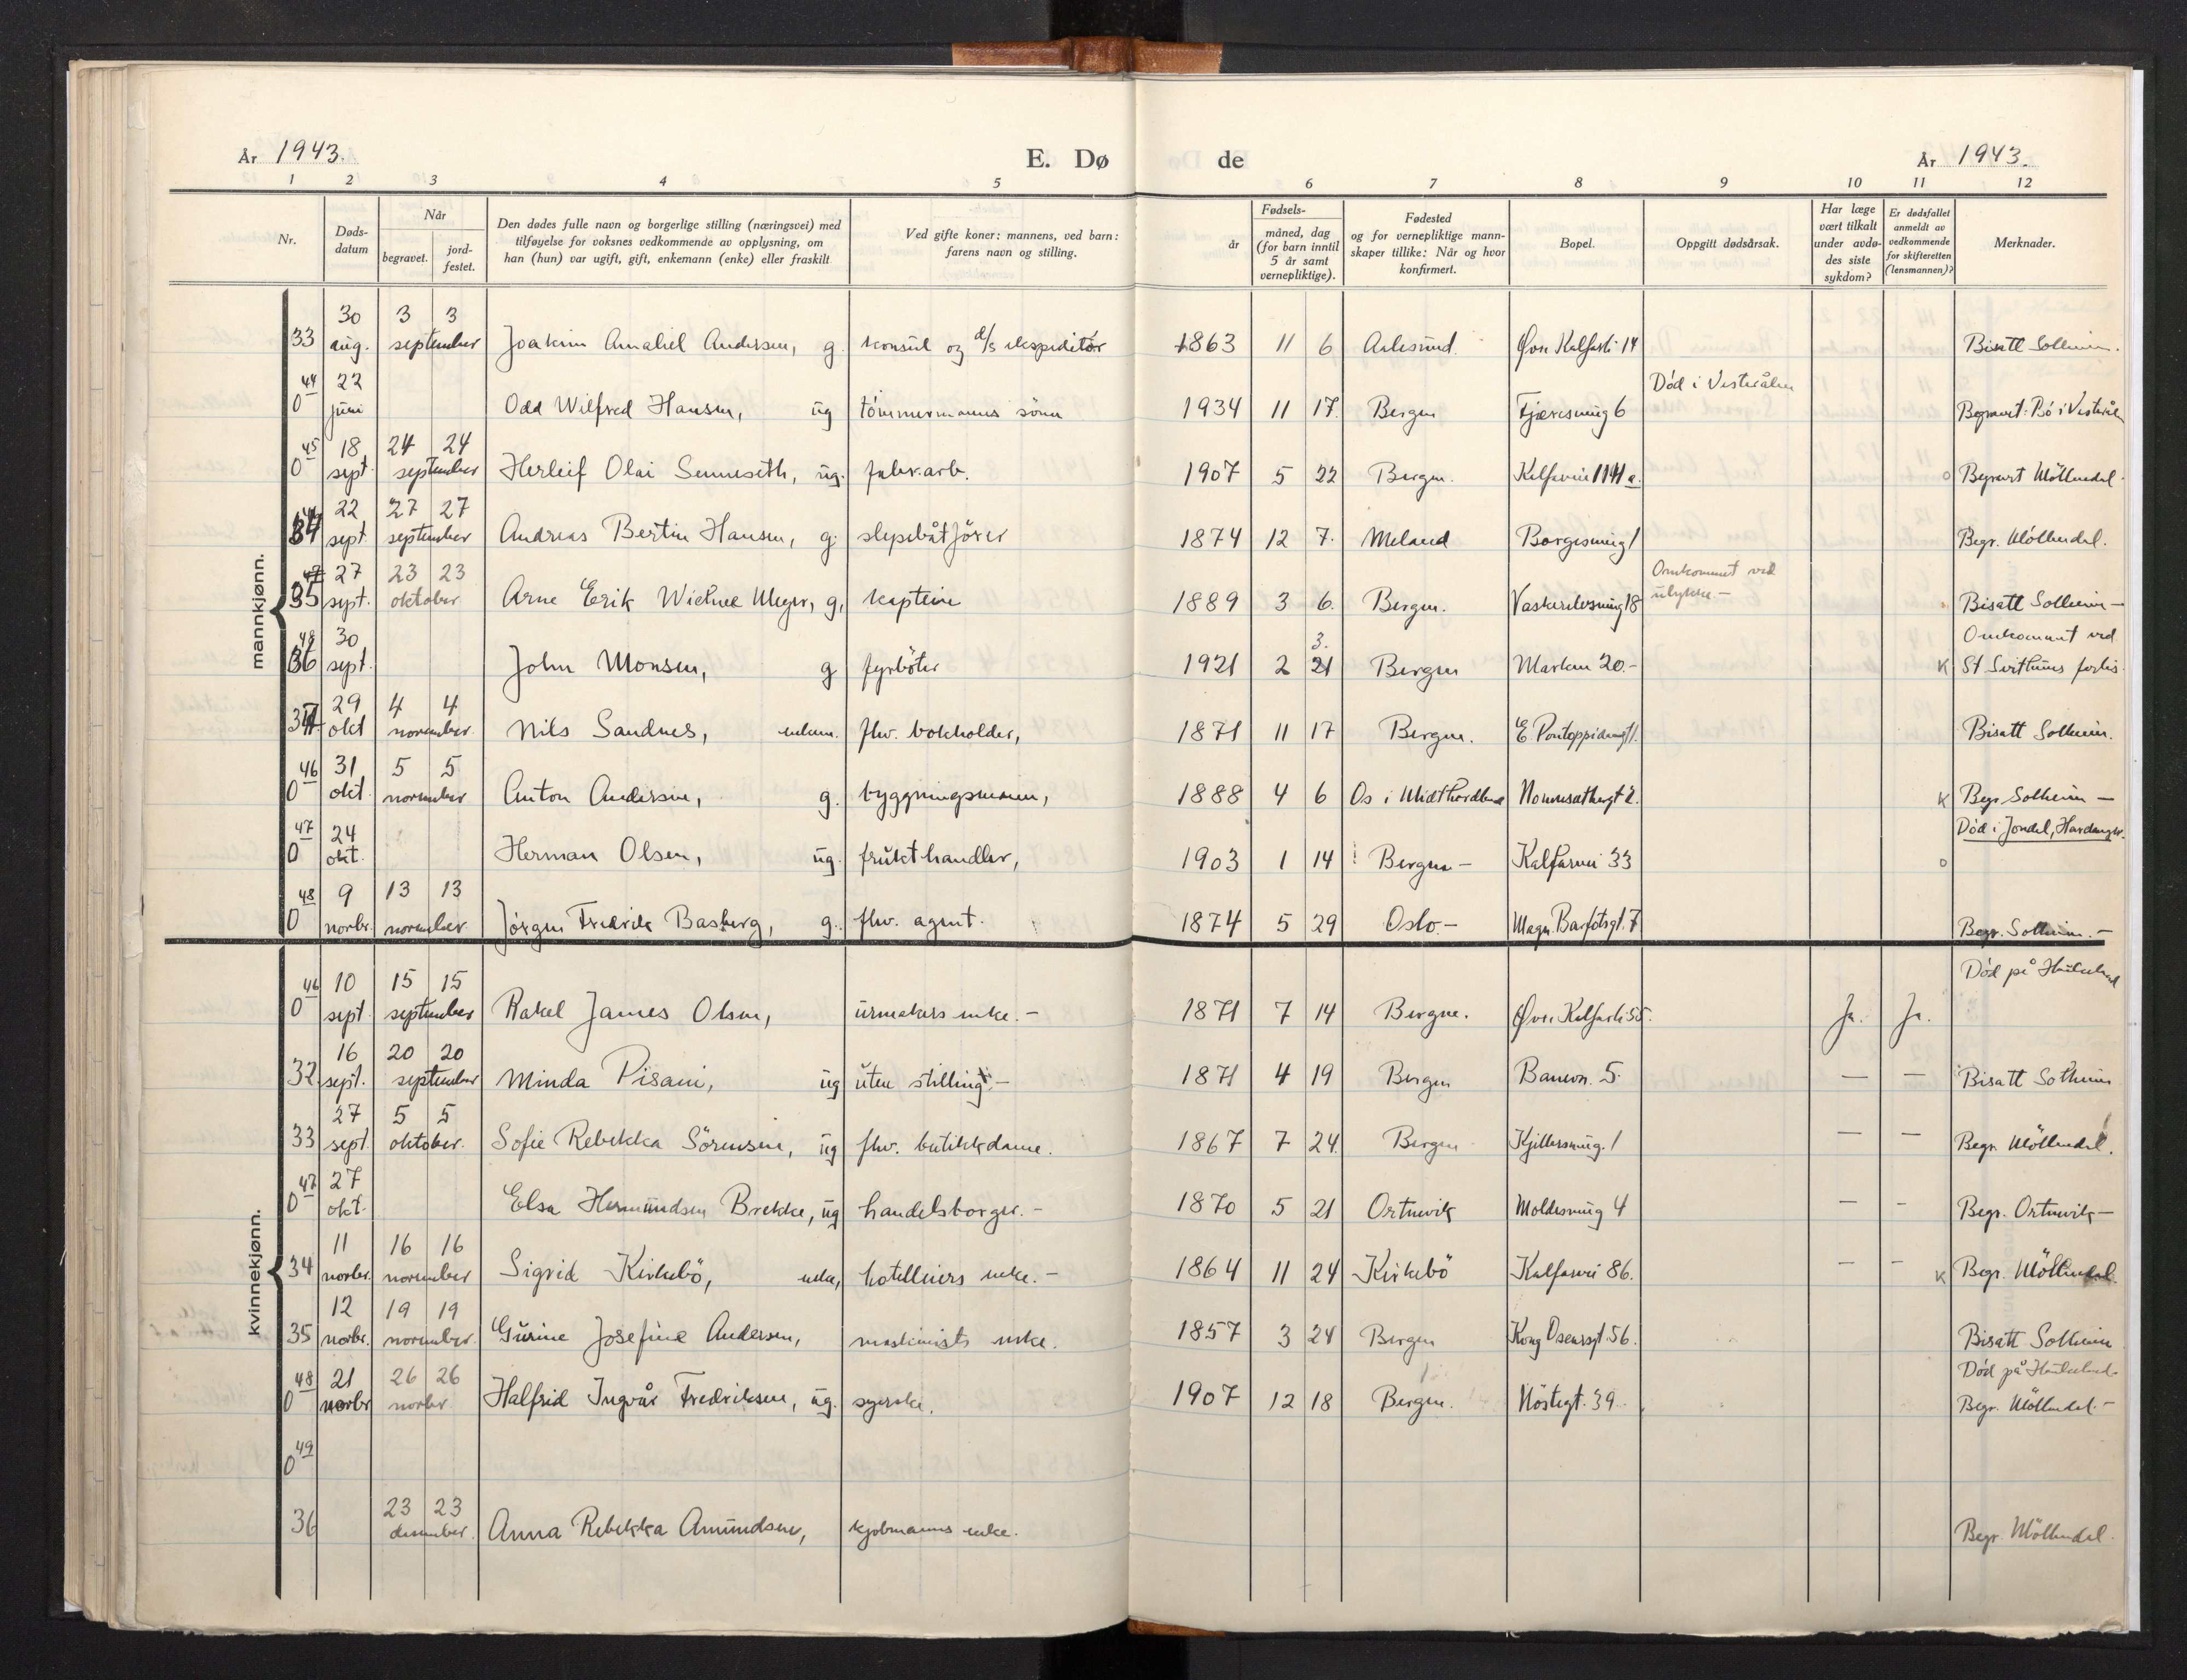 År 1943. E. Dø de År 1943.
1 2 3 4 5 6 7 8 9 10 11 12
Nr.
Døds-
datum
Når
begravet.
jord-
festet.
Den dødes fulle navn og borgerlige stilling (næringsvei) med
tilføyelse for voksnes vedkommende av opplysning, om
han (hun) var ugift, gift, enkemann (enke) eller fraskilt
Ved gifte koner: mannens, ved barn:
farens navn og stilling.
år
Fødsels-
måned, dag
(for barn inntil
5 år samt
vernepliktige).
Fødested
og for vernepliktige mann-
skaper tillike: Når og hvor
konfirmert.
Bopel.
Oppgitt dødsårsak.
Har læge
vært tilkalt
under avdø-
des siste
sykdom?
Er dødsfallet
anmeldt av
vedkommende
for skifteretten
(lensmannen)?
Merknader.
mannkjønn.
30 3 3
33 aug. september Joakim Amaliel Andersen, g. konsul og d/s ekspeditør 1863 11 6 Aalesund. Øvre Kalfarli 14 Bisatt Solheim.
44 22 Død i Vesterålen
0 juni Odd Wilfred Hansen, ug tömmermanns sönn 1934 11 17. Bergen Fjæresmug 6 Begravet: Bö i Vesterålen
45 18 24 24
0 sept. september Herleif Olai Senneseth, ug. fabr.arb. 1907 5 22 Bergen. Kalfarvei 114 a. o Begravet Möllendal.
22 27 27
34 sept. september Andreas Bertin Hansen, g. slepebåtförer 1874 12 7. Meland Borgesmug 1 Begr. Möllendal.
27 23 23 Omkommet ved
35 sept. oktober Arne Erik Meyer, g, kaptein 1889 3 6. Bergen. Vaskerelvsmug 18 ulykke.— Bisatt Solheim —
48 30 3. Omkommet ved
36 sept. John Monsen, g fyrböter 1921 2 21 Bergen Marken 20.- K St Svithuns forlis
29 4 4
37 okt november. Nils Sandnes, enkem. fhv. bokholder, 1871 11 17 Bergen. E. Pontoppidansgt 11. Bisatt Solheim.
46 31 5 5
0 okt. november Anton Andersen, g. byggningsmann, 1888 4 6 Os i Midthordland K Begr. Solheim —
47 24 Död i Jondal, Hardanger.
0 okt. Herman Olsen, ug. frukthandler, 1903 1 14 Bergen — Kalfarvei 33 o
48 9 13 13
0 novbr. november Jørgen Fredrik Basberg, g. fhv. agent. 1874 5 29 Oslo.— Magn. Barfotsgt. 7 Begr. Solheim.—
kvinnekjønn.
46 10 15 15 Död på Haukeland
0 sept. september Rakel James Olsen, urmakers enke.— 1871 7 14 Bergen. Øvre Kalfarli 55. Ja. Ja.
16 20 20
32. sept. september Minda Pisani, ug uten stilling.— 1871 4 19 Bergen Banevn. 5. — — Bisatt Solheim
27 5 5
33 sept. oktober. Sofie Rebekka Sörensen, ug fhv. butikkdame. 1867 7 24. Bergen Kjellersmug. 1 — — Begr. Möllendal.
47 27
0 okt. Elsa Hermundsen Brekke, ug handelsborger.— 1870 5 21 Ortnevik Moldesmug 4 — - Begr. Ortnevik —
11 16 16
34 novbr. november Sigrid Kirkebö, enke, hotelleiers enke.— 1864 11 24 Kirkebö Kalfarvei 86. — - K Begr. Möllendal.
12 19 19
35 novbr. november. Gurine Josefine Andersen, maskinists enke. 1857 3 24 Bergen Kong Oscarsgt. 56. Bisatt Solheim
48 21 26 26 Död på Haukeland.
0 novbr novbr Halfrid Ingvår Fredriksen, ug. syerske. 1907 12 18 Bergen. Nöstegt. 39 Begr. Möllendal.—
49
0
23 23
36 desember. Anna Rebekka Amundsen, kjøbmanns enke. Begr. Möllendal.